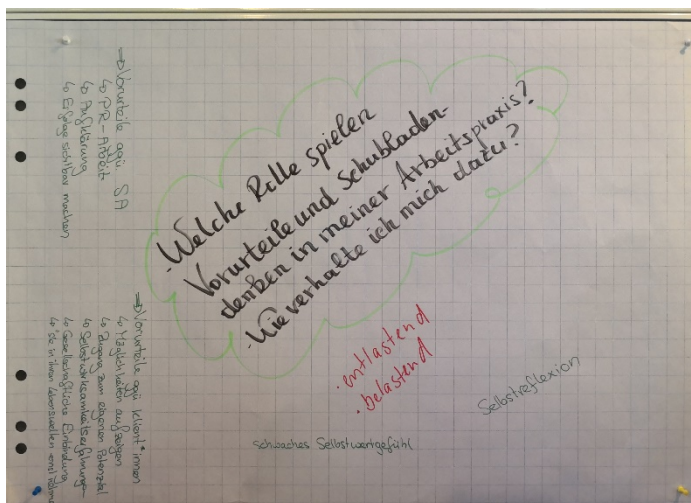 - Welche Rolle spielen
Vorurteile und Schubladen-
denken in meiner Arbeitspraxis?
- Wie verhalte ich mich dazu?
• entlastend
• belastend
Selbstreflexion
schwaches Selbstwertgefühl
→ Vorurteile ggü SA
↳ PR-Arbeit
↳ Aufklärung
↳ Erfolge sichtbar machen
→ Vorurteile ggü Klient*innen
↳ Möglichkeiten aufzeigen
↳ Zugang zum eigenen Potenzial
↳ Selbstwirksamkeitserfahrungen
↳ Gesellschaftliche Einbindung
↳ Sie in ihren Lebenswelten ernst nehmen